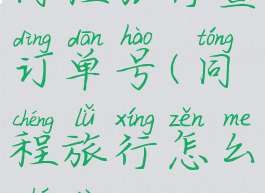 dìng dān hào tóng
订单号(同
chéng lǚ xíng zěn me
程旅行怎么